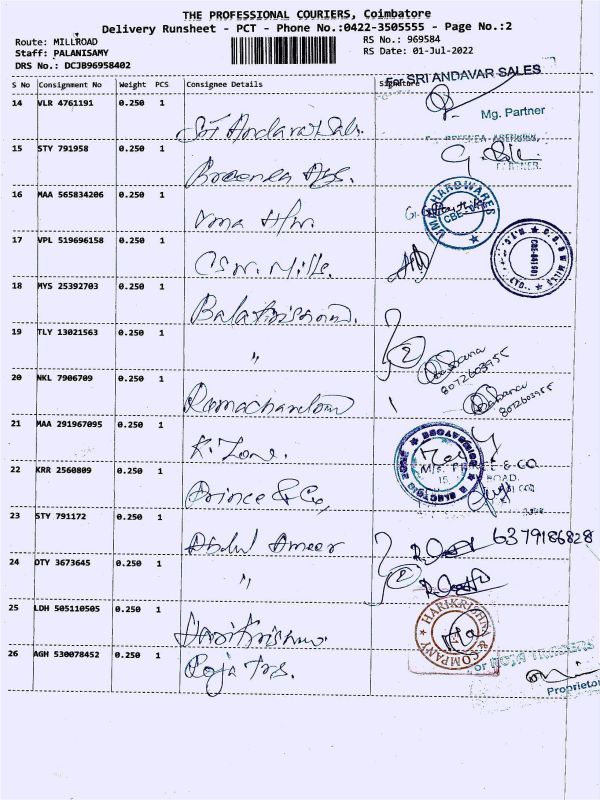 THE PROFESSIONAL COURIERS, Coimbatore
Delivery Runsheet - PCT - Phone No.:0422-3505555 - Page No.:2
Route: MILLROAD
RS No.: 969584
Staff: PALANISAMY
RS Date: 01-Jul-2022
DRS No.: DCJB96958402
S No Consignment No Weight PCS Consignee Details Signature
For SRI ANDAVAR SALES
14 VLR 4761191 0.250 1 Sri Andavar Sales.
Mg. Partner
15 STY 791958 0.250 1
PARTNER.
16 MAA 565834206 0.250 1 Uma H/w.
HARDWARES
CBE
17 VPL 519696158 0.250 1 CSW. Mills.
C.S.W MILLS
CBE-641001
18 MYS 25392703 0.250 1 Balakrishna.
19 TLY 13021563 0.250 1 "
2
8072603955
20 NKL 7906709 0.250 1 Ramachandran
1
8072603955
21 MAA 291967095 0.250 1 K. Zone.
22 KRR 2560809 0.250 1 Prince & Co,
M/s. PRINCE & CO
23 STY 791172 0.250 1 Abdul Ameer
6379186828
24 DTY 3673645 0.250 1 "
2
25 LDH 505110505 0.250 1 Harikrishna.
HARIKRISHNA & COMPANY
26 AGH 530078452 0.250 1 Roja Trs.
For ROJA TRADERS
Proprietor